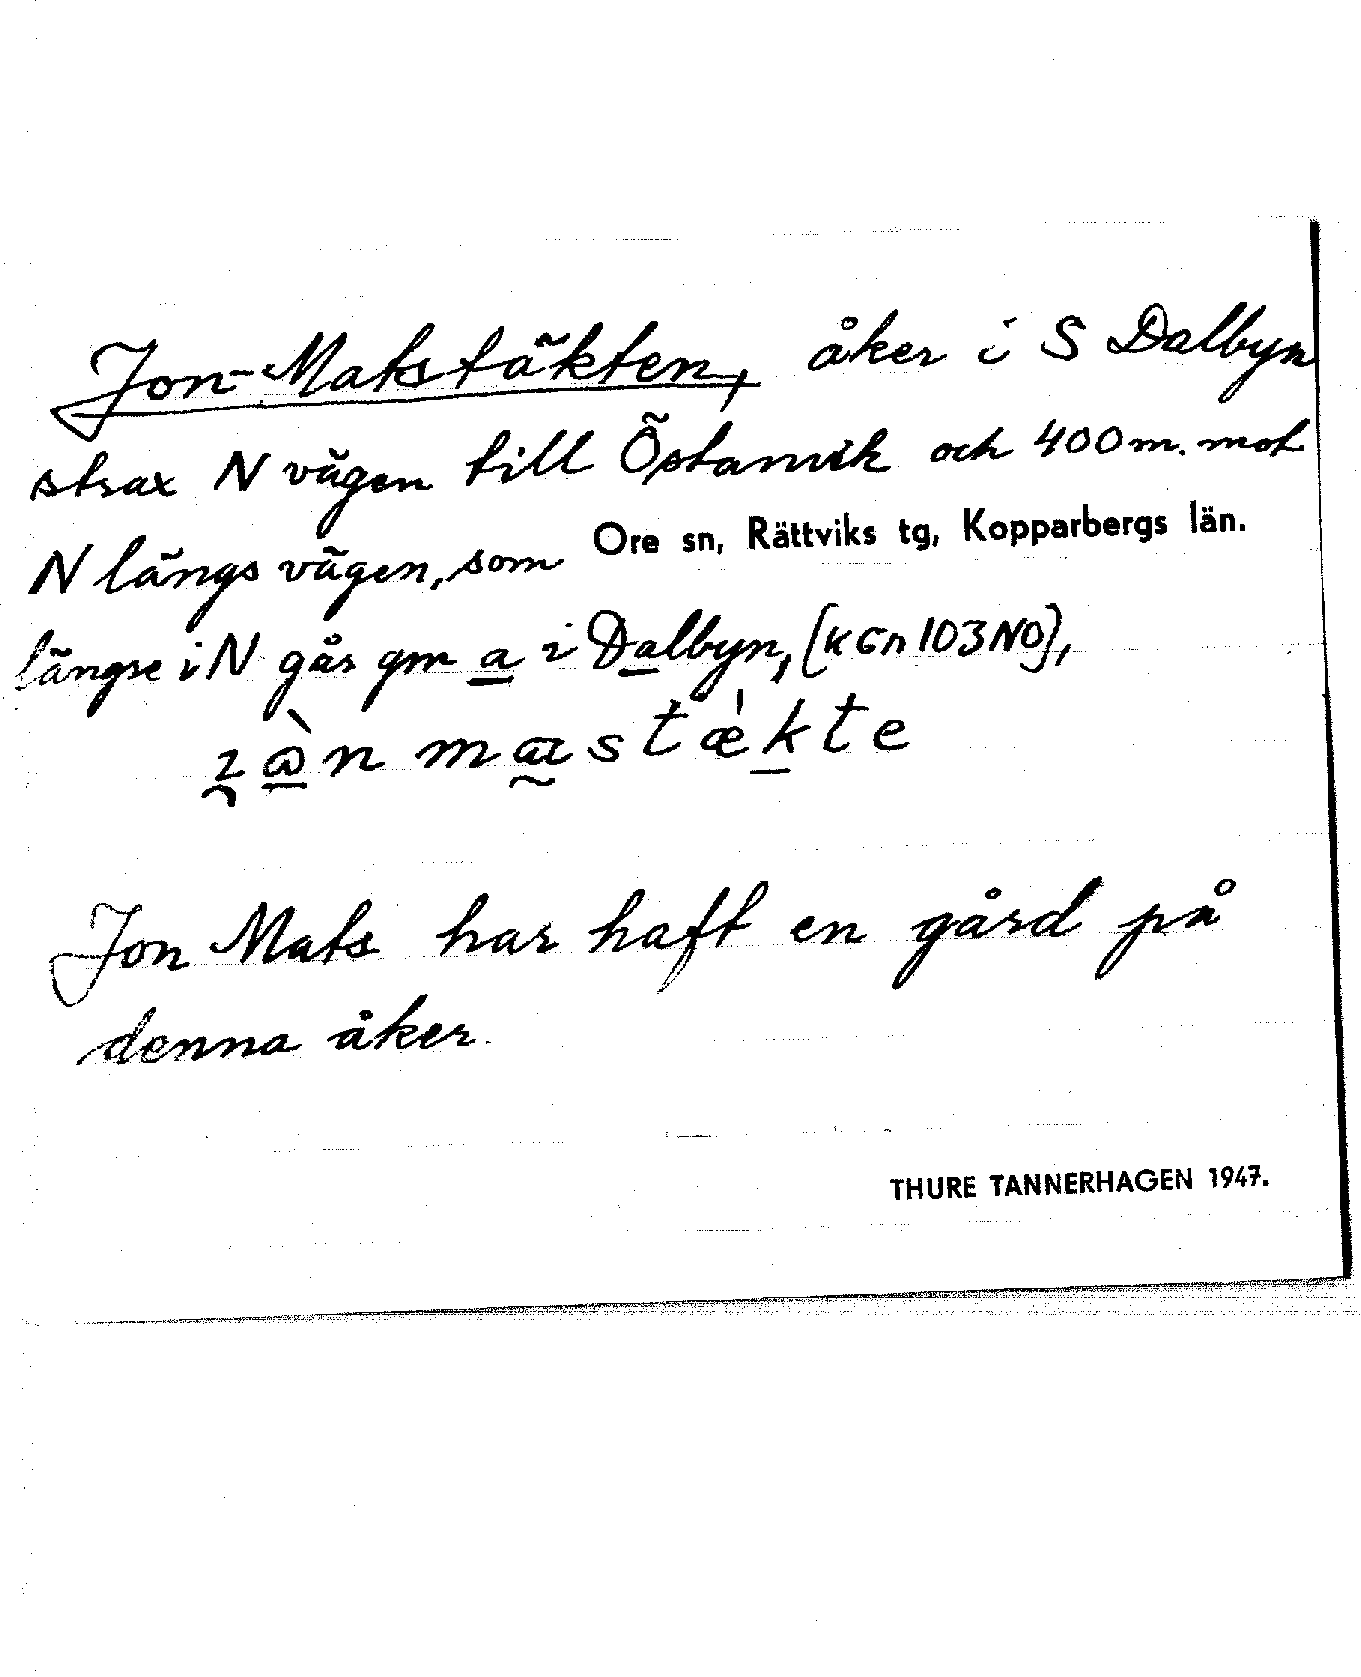 Jon-Matstäkten, åker i S Dalbyn
strax N vägen till Östanvik och 400 m. mot
N längs vägen, som Ore sn, Rättviks tg, Kopparbergs län.
längre i N går gm a i Dalbyn, (k Gn 103 NO),
mastække
Jon Mats har haft en gård på
denna åker.
THURE TANNERHAGEN 1947.